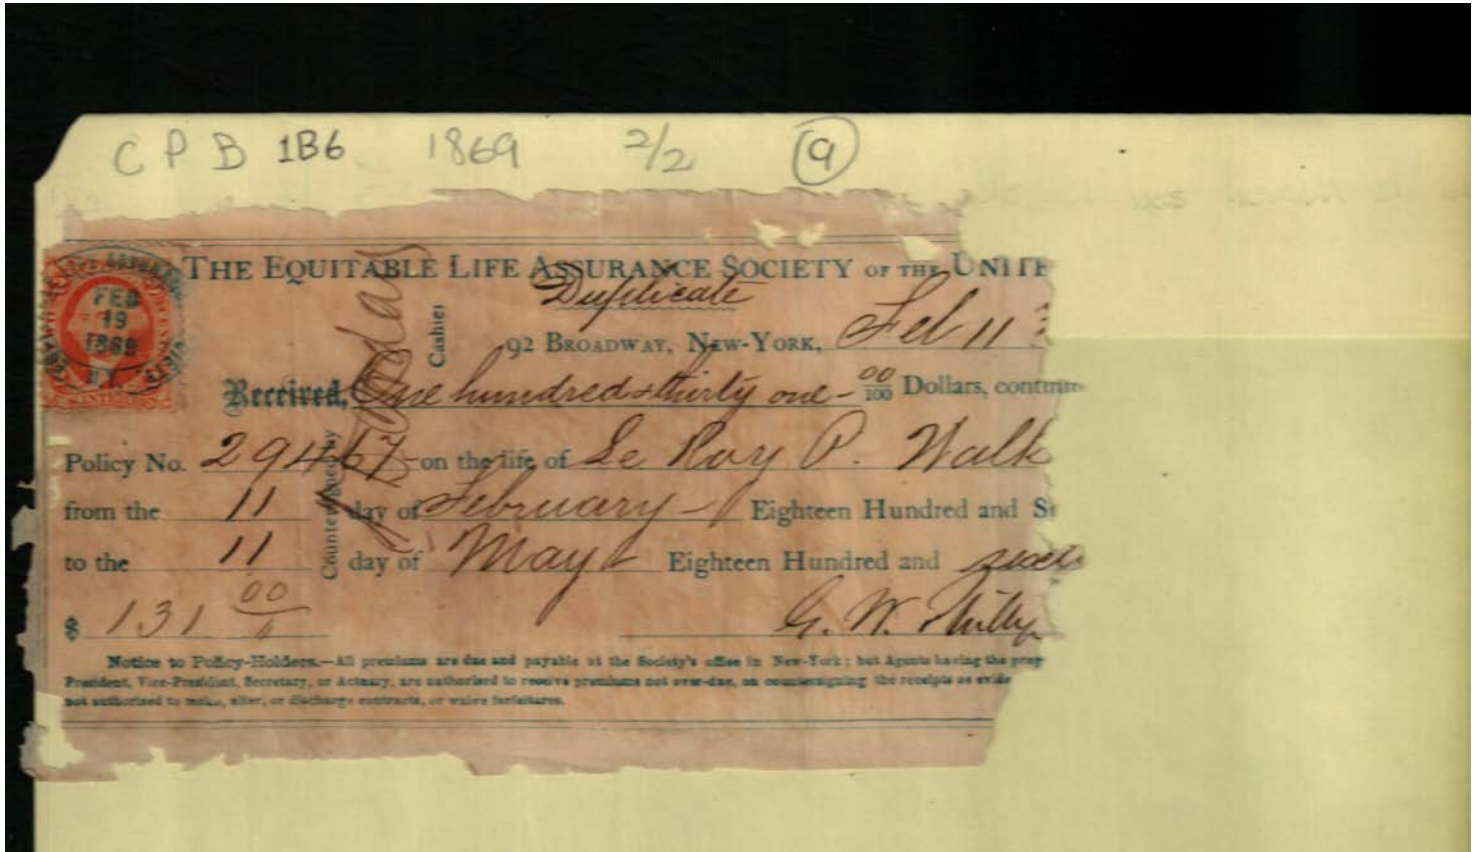 C P B 1B6 1869 2/2 9
THE EQUITABLE LIFE ASSURANCE SOCIETY OF THE UNITE
Duplicate
92 BROADWAY, NEW-YORK, Feb 11
Received, One hundred & thirty one - 00/100 Dollars, continu
Policy No. 29467 on the life of Le Roy P. Walk
from the 11 day of February - Eighteen Hundred and S
to the 11 day of May Eighteen Hundred and
$ 131 00
G. W. Phillip
Notice to Policy-Holders.—All premiums are due and payable at the Society's office in New-York; but Agents having the prop
President, Vice-President, Secretary, or Actuary, are authorised to receive premiums not over-due, on countersigning the receipts as evide
not authorised to make, alter, or discharge contracts, or waive forfeitures.
Countersigned by
Cashier
FEB
19
1869